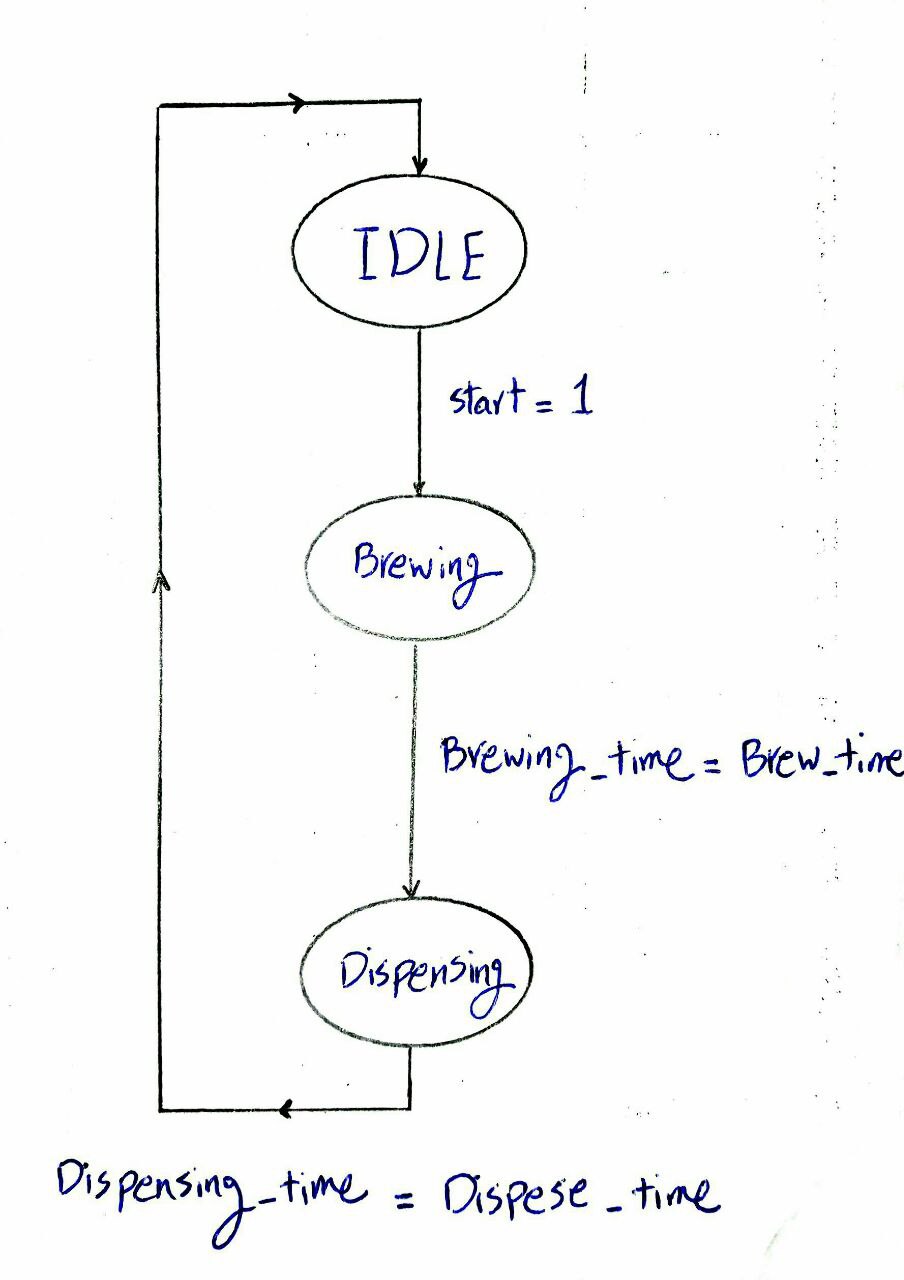 IDLE
start = 1
Brewing
Brewing_time = Brew_time
Dispensing
Dispensing_time = Dispese_time